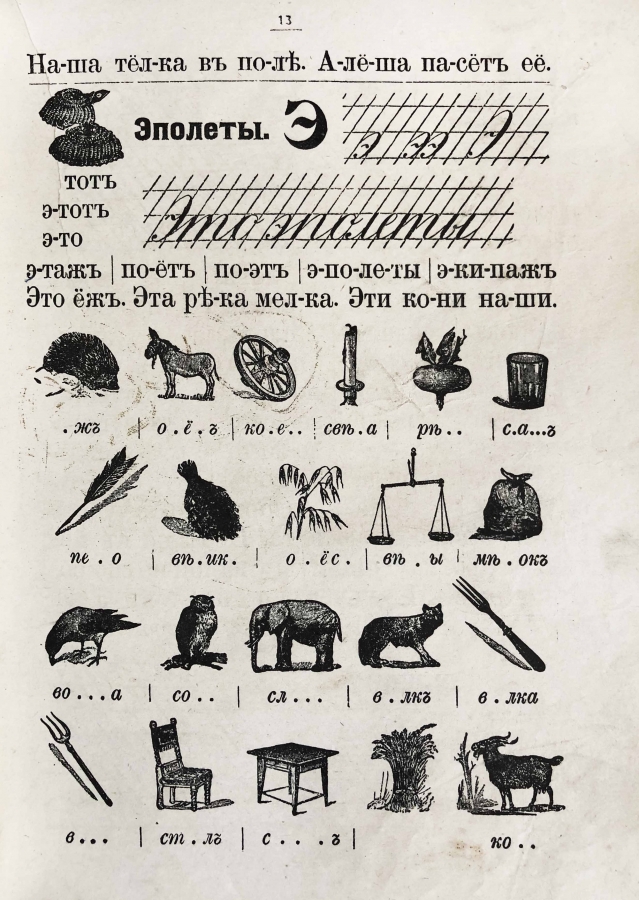 13
На-ша тёл-ка въ по-лѣ. А-лё-ша па-сётъ её.
Эполеты. Э э ээ Э
тотъ
э-тотъ
э-то
Это эполеты
э-тажъ | по-ётъ | по-этъ | э-по-ле-ты | э-ки-пажъ
Это ёжъ. Эта рѣ-ка мел-ка. Эти ко-ни на-ши.
. жъ | о . ё . ъ | ко . е . . | свѣ . а | рѣ . . | с . а . . . ъ
пе . о | вѣ . ик . | о . ёс . | вѣ . ы | мѣ . окъ
во . . . а | со . . | сл . . . | в . лкъ | в . лка
в . . . | ст . лъ | с . . . ъ | ко . .